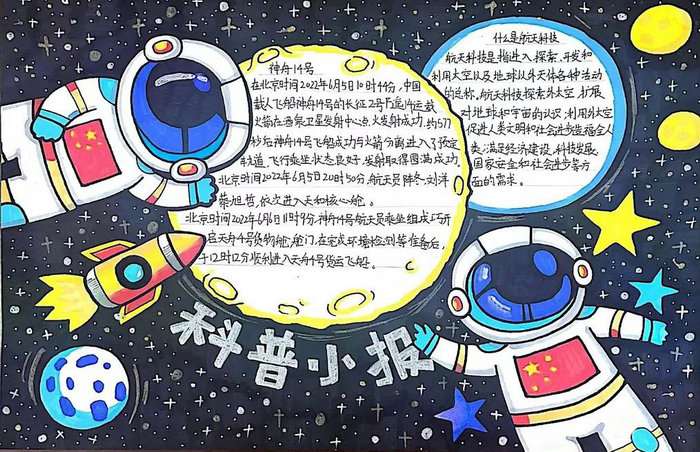 神舟14号
在北京时间2022年6月5日10时44分，中国
载人飞船神舟14号的长征2号F遥14运载
火箭在酒泉卫星发射中心点火发射成功，约577
秒后神舟14号飞船成功与火箭分离进入了预定
轨道，飞行乘组状态良好，发射取得圆满成功。
北京时间2022年6月5日20时50分，航天员陈冬、刘洋
蔡旭哲，依次进入天和核心舱。
北京时间2022年6月6日11时9分，神舟14号航天员乘组
启天舟4号货物舱，舱门，在完成环境检测等准备后，
于12时12分顺利进入天舟4号货运飞船。
什么是航天科技
航天科技是指进入、探索、开发和
利用太空以及地球以外天体各种活动
的总称。航天科技探索外太空，扩展
对地球和宇宙的认识；利用外太空
促进人类文明和社会进步造福全人
类；满足经济建设、科技发展、
国家安全和社会进步等方
面的需求。
科普小报